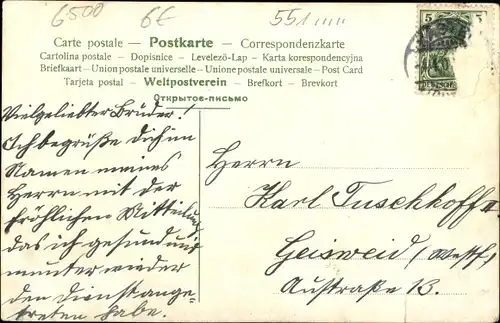 6500 6€ 551
Carte postale – Postkarte – Correspondenzkarte
Cartolina postale – Dopisnice – Levelező-Lap – Karta korespondencyjna
Briefkaart – Union postale universelle – Unione postale universale – Post Card
Tarjeta postal – Weltpostverein – Brefkort – Brevkort
Открытое-письмо
5
5
Vielgeliebter Bruder!
Ich begrüße dich im
Namen meines
Herrn mit der
fröhlichen Mitteilung
das ich gesund und
munter wieder
den Dienst ange-
treten habe.
Herrn
Karl Tuschhoff II
Geisweid (Westf)
Austraße 13.